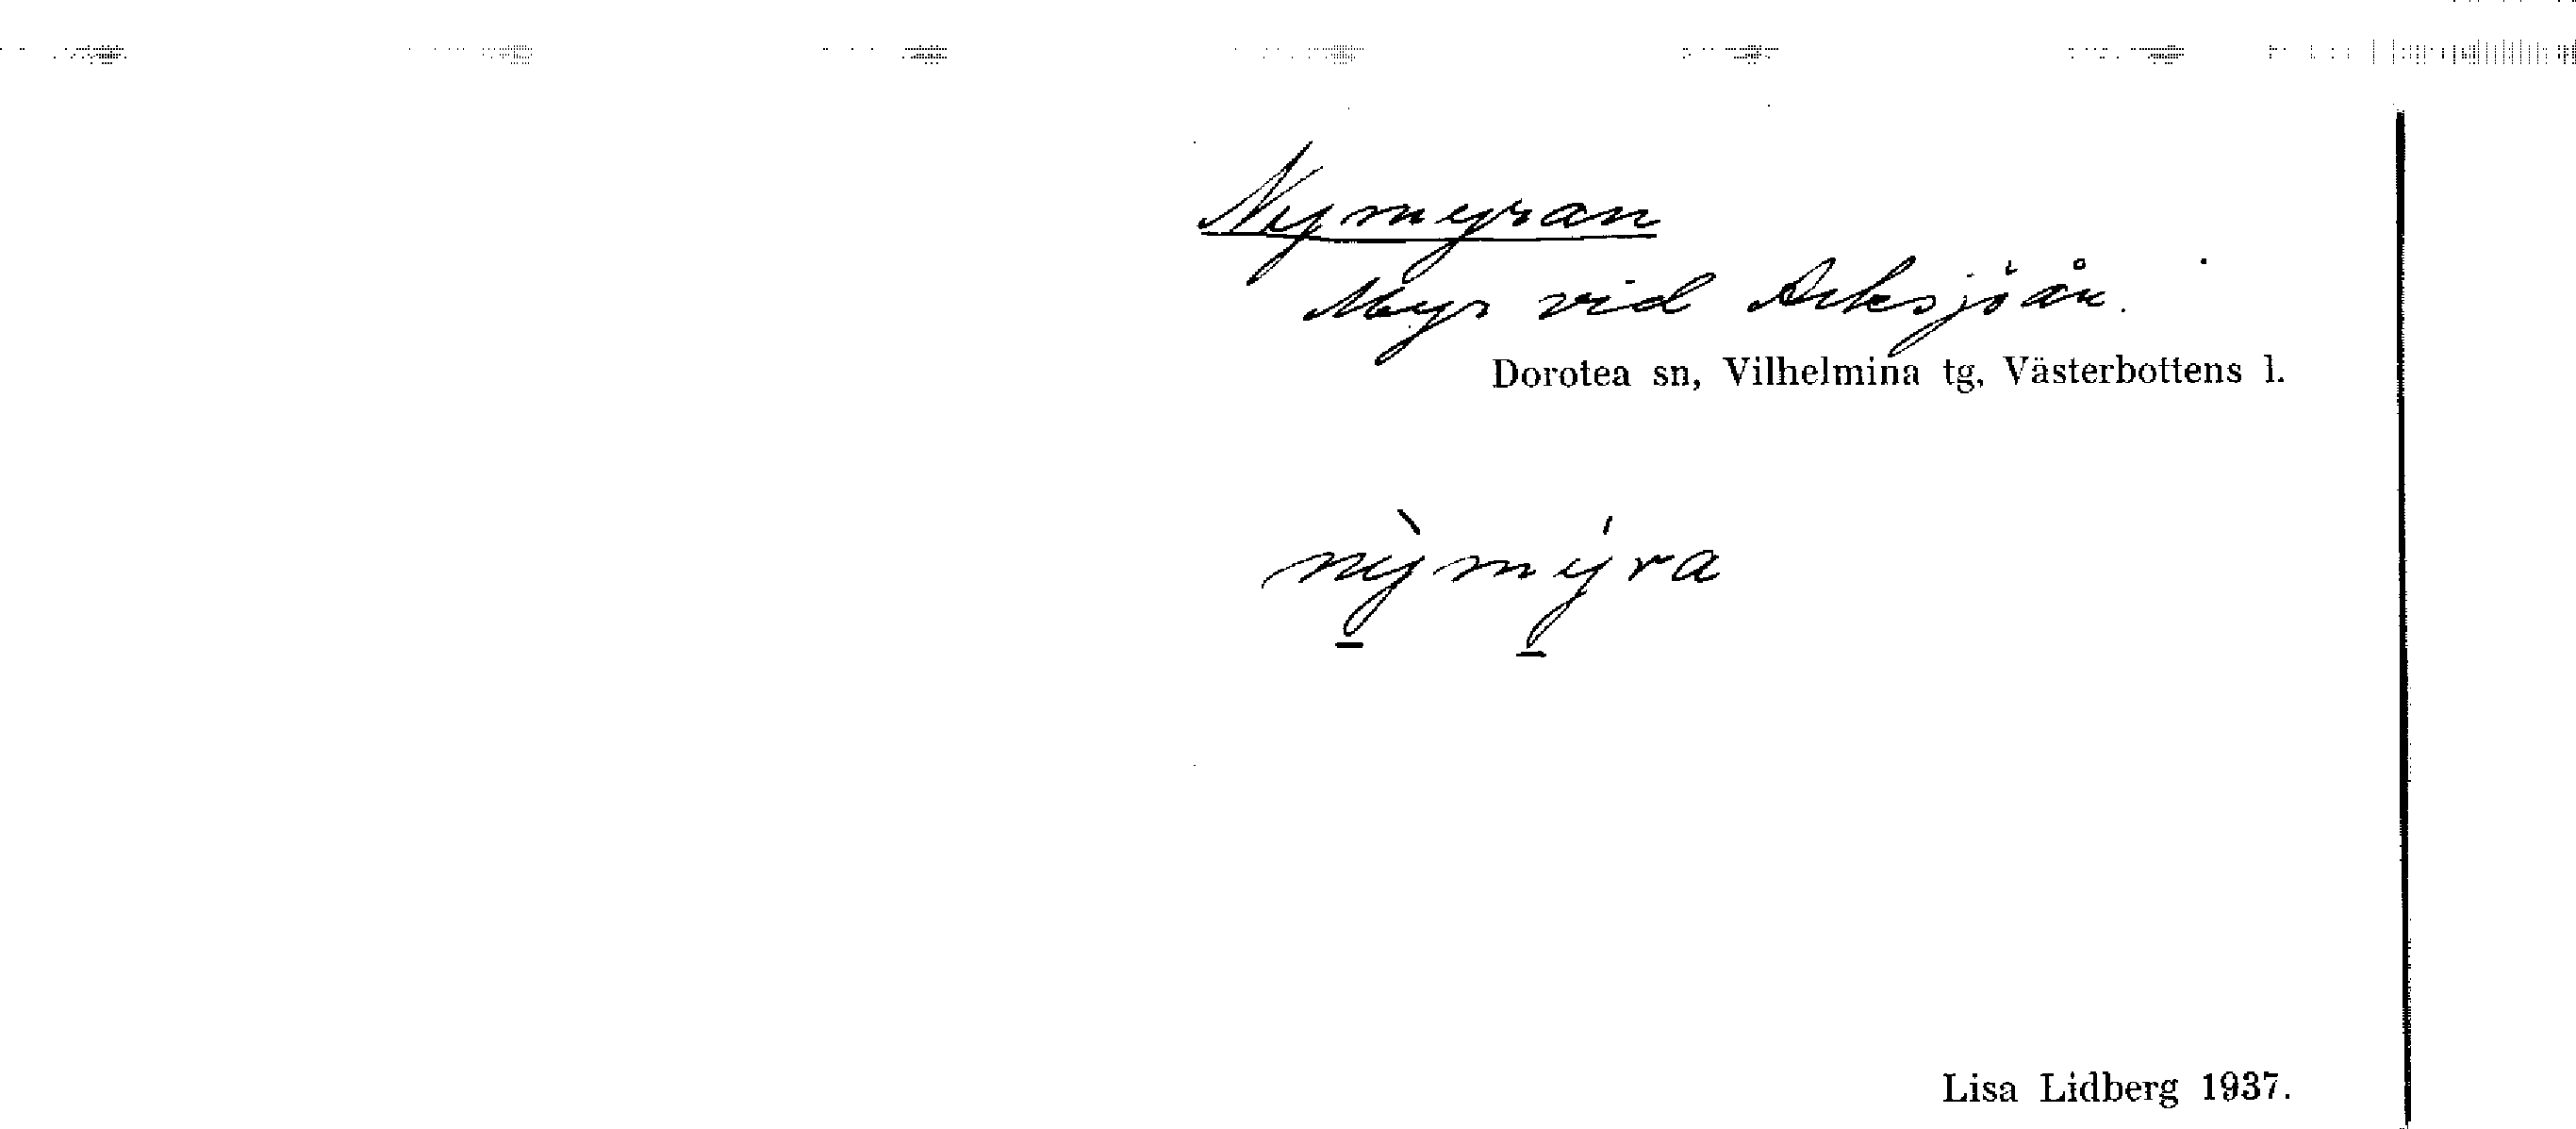 Nymyran
Myr vid Arksjöån.
Dorotea sn, Vilhelmina tg, Västerbottens l.
nỳmýra
Lisa Lidberg 1937.